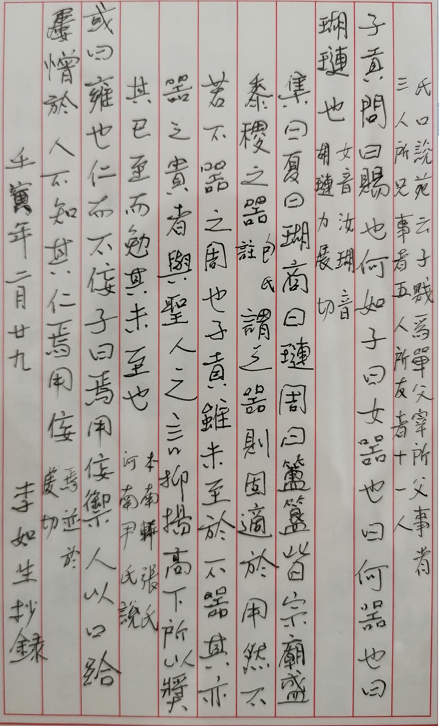 氏曰說苑云子賤為單父宰所父事者
三人所兄事者五人所友者十一人
子貢問曰賜也何如子曰女器也曰何器也曰
瑚璉也女音汝瑚音胡璉力展切
集曰夏曰瑚商曰璉周曰簠簋皆宗廟盛
黍稷之器包氏註謂之器則固適於用然不
若不器之周也子貢雖未至於不器其亦
器之貴者與聖人之言抑揚高下所以獎
其已至而勉其未至也本南軒張氏河南尹氏說
或曰雍也仁而不佞子曰焉用佞禦人以口給
屢憎於人不知其仁焉用佞焉並於虔切
壬寅年二月廿九 李如生抄錄